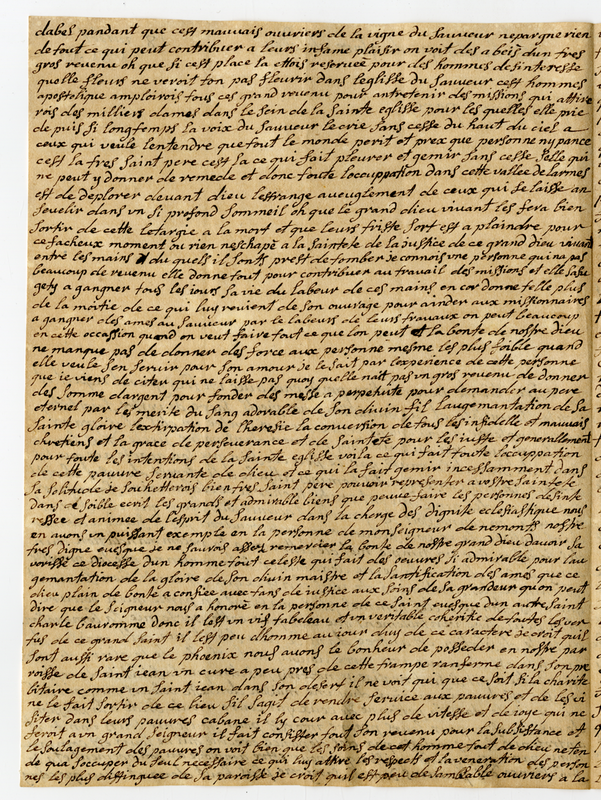 dabel pandant que cest mauvais ouvriers de la vigne du Sauveur nepargne rien
de tout ce qui peut contribuer a leurs infame plaisir on voit des abeis dun tres
gros revenu oh que si cest place la ettois reservee pour des hommes desinteresse
quelle fleurs ne veroit ton pas fleurir dans leglisse du Sauveur cest hommes
apostolique amploirois tous ces grand revenu pour antretenir des missions qui attire
rois des milliers dames dans le sein de la Sainte eglisse pour les quelles elle prie
de puis Si longtemps la voix du Sauveur le crie Sans cesse du haut du ciel a
ceux qui veule lentendre que tout le monde perit et prex que personne ny pance
cest la tres Saint pere cest la ce qui fait pleurer et gemir Sans cesse Selle qui
ne peut y donner de remede et donc toute loccupation dans cette vallee de larmes
est de deplorer devant dieu lestrange aveuglement de ceux qui se laisse an
Sevelir dans un Si profond Sommeil oh que le grand dieu vivant les fera bien
Sortir de cette letargie a la mort et que leurs triste Sort est a plaindre pour
ce facheux moment ou rien neschape a la Saintete de la justice de ce grand dieu vivant
entre les mains du quels il Sonts prest de tomber je connois une personne qui na pas
beaucoup de revenu elle donne tout pour contribuer au travail des missions et elle Sasu
gety a gangner tous les jours Sa vie du labeur de ces mains en cor donne telle plus
de la moitie de ce qui luy revient de Son ouvrage pour ainder aux missionnaires
a gangner des ames au Sauveur par le labeurs de leurs travaux on peut beaucoup
en cette occassion quand on veut faire tout ce que lon peut et la bonte de nostre dieu
ne manque pas de donner des force aux personne mesme les plus foible quand
elle veule Sen Servir pour Son amour je le Sait par lexperience de cette personne
que je viens de citer qui ne laisse pas quoy quelle nait pas un gros revenu de donner
des Somme dargent pour fonder des messe a perpetuite pour demander au pere
eternel par les merite du Sang adorable de Son divin fil laugemantation de Sa
Sainte gloire lextirpation de lheresie la conversion de tous les infidelle et mauvais
chretiens et la grace de perseverance et de Saintete pour les juste et generallement
pour toute les intentions de la Sainte eglisse voila ce qui fait toute loccupation
de cette pauvre Servante de dieu et ce qui la fait gemir incessamment dans
Sa Solitude je Souhetterois bien tres Saint pere pouvoir representer a vostre Saintete
dans ce foible ecrit les grands et admirable biens que peuve faire les personnes desinte
ressee et animee de lesprit du Sauveur dans la charge des dignite ecclesiastique nous
en avons un puissant exemple en la personne de monseigneur de nemonts nostre
tres digne evesque je ne Saurois assez remercier la bonte de nostre grand dieu davoir fa
vorisse ce diocesse dun homme tout celeste qui fait des oeuvres Si admirable pour lau
gemantation de la gloire de Son divin maistre et la Santification des ames que ce
dieu plain de bonte a confiee avec tans de justice aux Soins de Sa grandeur on peut
dire que le Seigneur nous a honore en la personne de ce Saint evesque dun autre Saint
charle bauromme donc il est un vif tableau et un veritable heritie de toutes les ver
tus de ce grand Saint il est peu dhomme au jour duy de ce caractere je croit quil
Sont aussi rare que le phoenix nous avons le bonheur de posseder en nostre par
roisse de Saint jean un cure a peu pres de cette trampe ranferme dans Son pre
bitaire comme un Saint jean dans Son desert il ne voit qui que ce soit Si la charite
ne le fait Sortir de ce lieu Sil Sagit de rendre Service aux pauvres et de les vi
Siter dans leurs pauvres cabane il ly cour avec plus de vitesse et de joye qui ne
feroit a un grand Seigneur il fait consister tout Son revenu pour la Subsistance et
le soulagement des pauvres on voit bien que les soins de cet homme tout de dieu ne ten
de qua Soccuper du Seul necessaire ce qui luy attire les respects et la veneration des person
nes les plus distinguee de Sa paroisse je croit quil est peu de Samblable ouvriers a la